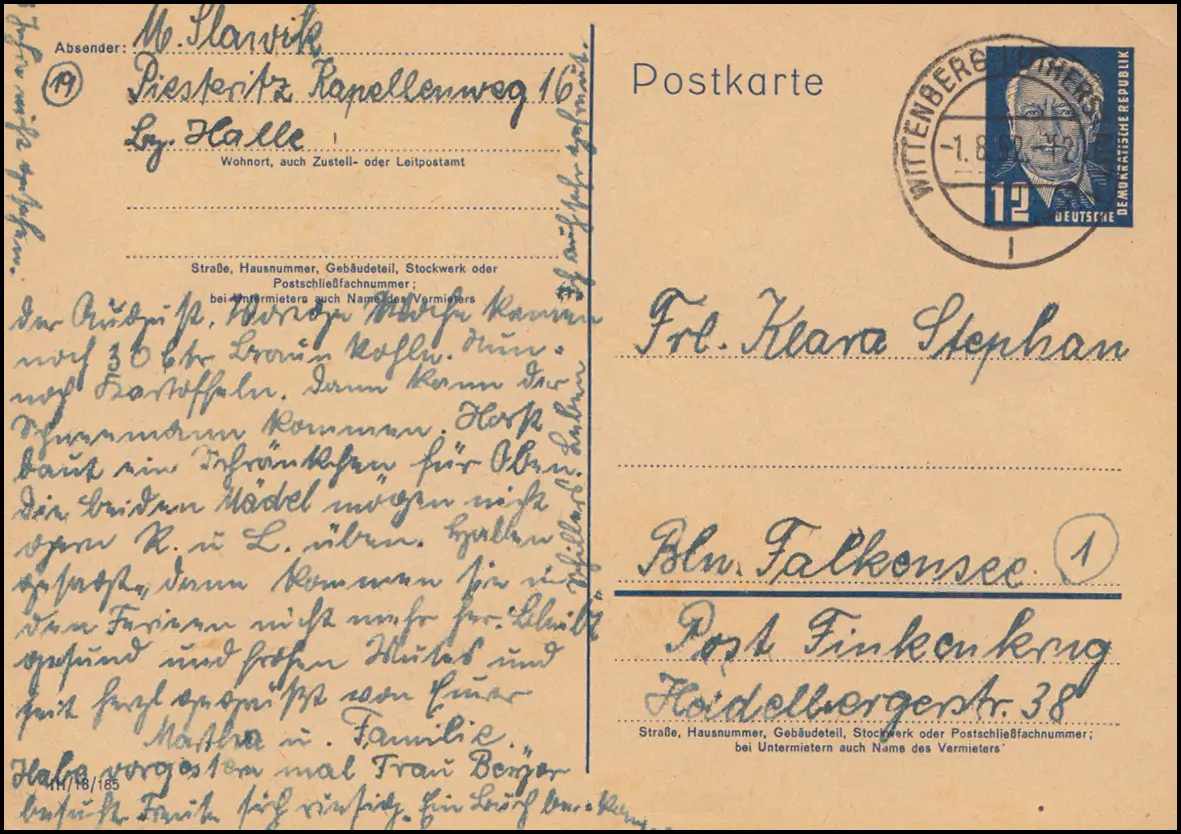 Absender: M. Slawik
(19) Piesteritz Kapellenweg 16
Bz. Halle
Wohnort, auch Zustell- oder Leitpostamt
Straße, Hausnummer, Gebäudeteil, Stockwerk oder
Postschließfachnummer;
bei Untermietern auch Name des Vermieters
der August. Vorige Woche kamen
noch 30 Ctr. Braunkohln. Nun
noch Kartoffeln. dann kann der
Schneemann kommen. Horst
baut ein Schränkchen für Oben.
Die beiden Mädel mögen nicht
gern R. u L. üben. Haben
gesagt, dann kommen sie in
den Ferien nicht mehr her. Bleibt
gesund und frohen Mutes und
seit herzl gegrüßt von Eurer
Martha u. Familie.
Habe vorgestern mal Frau Berger
besucht. Freute sich riesig. Ein Buch
III/18/185
Jahre nicht gesehen.
Schillers Leben
Ich auch sehr
Postkarte
WITTENBERG LUTHERST
-1.8.52.-12
12
DEUTSCHE
DEMOKRATISCHE REPUBLIK
Frl. Klara Stephan
Bln. Falkensee (1)
Post Finkenkrug
Heidelbergerstr. 38
Straße, Hausnummer, Gebäudeteil, Stockwerk oder Postschließfachnummer;
bei Untermietern auch Name des Vermieters